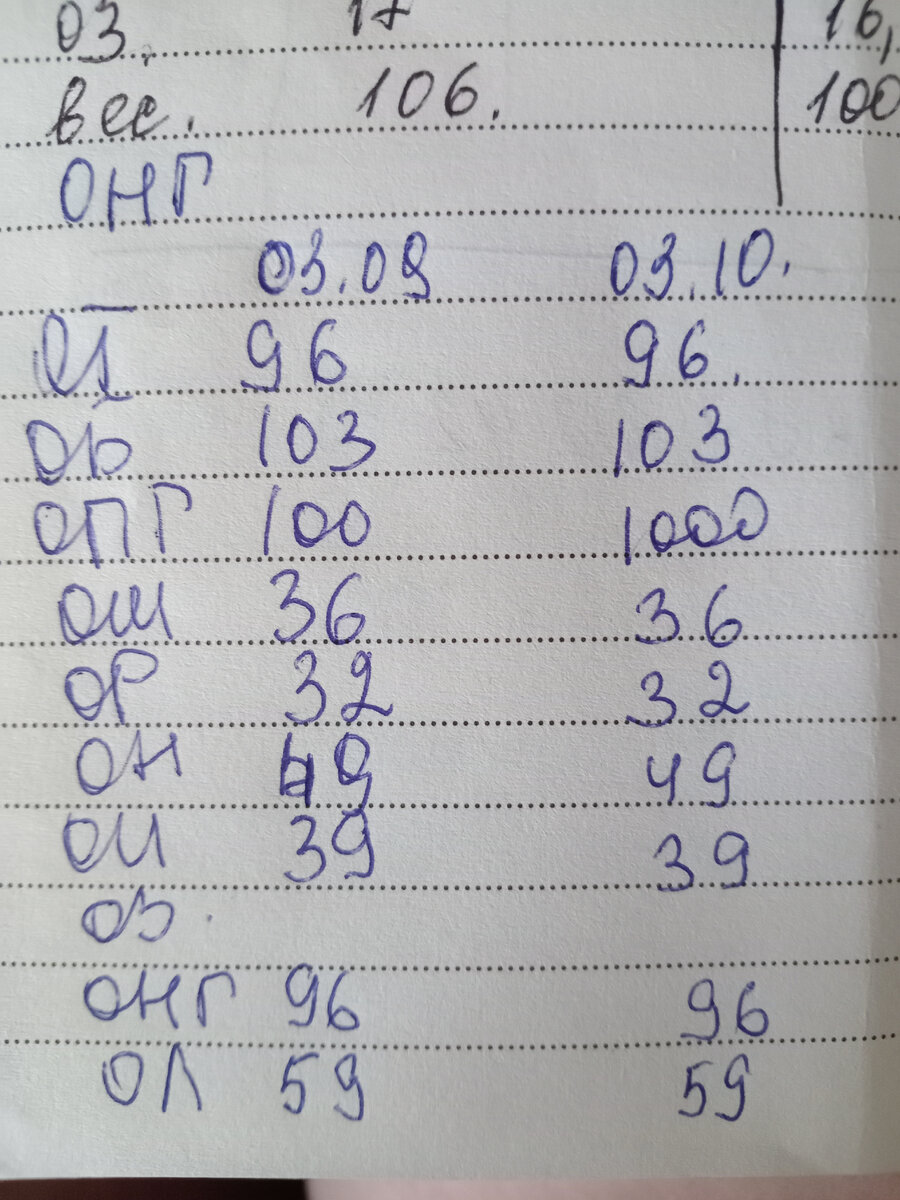 ОЗ. 17 16,
вес. 106. 100
ОНГ
03.09 03.10.
ОТ 96 96.
ОБ 103 103
ОПГ 100 1000
ОШ 36 36
ОР 32 32
ОН 49 49
ОИ 39 39
ОЗ.
ОНГ 96 96
ОЛ 59 59